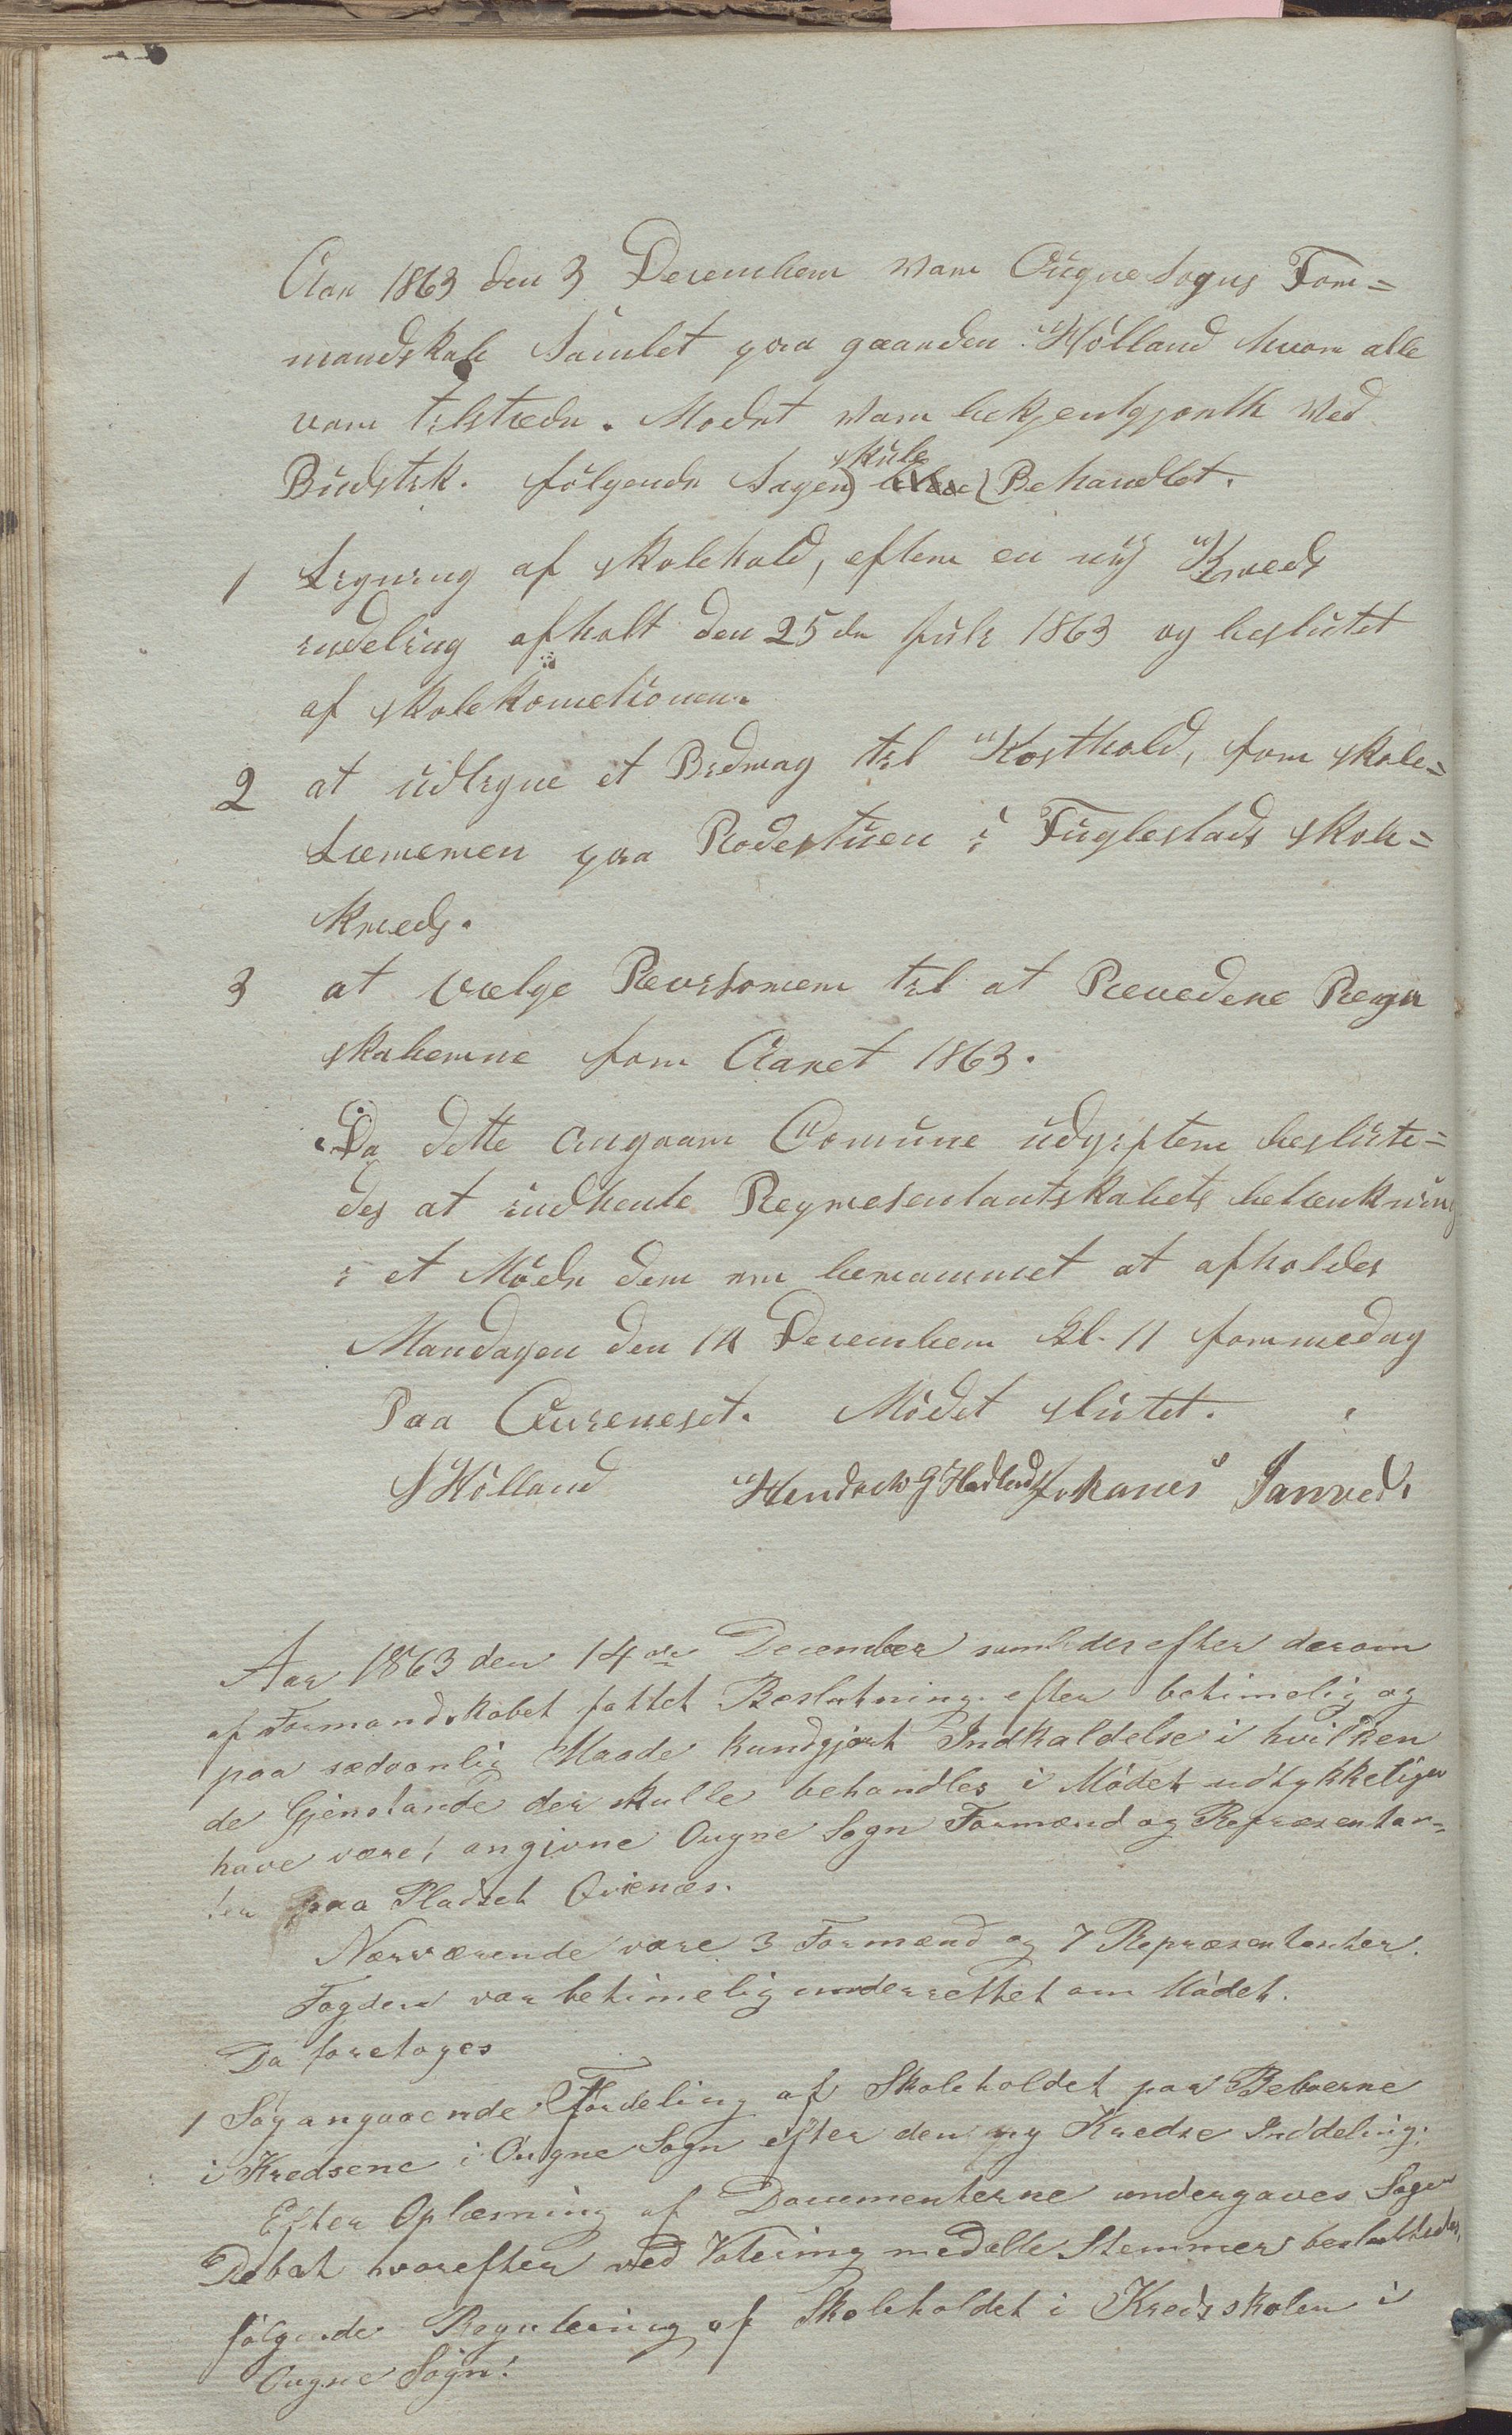 Aar 1863 den 3 December var Ougne Sogns For=
mandskab Samlet paa gaarden Hölland hvor alle
var tilstæde. Mødet var bekjentgjorth ved
Budstik. følgende Sager skule Behandlet.
1 Ligning af skolehold, efter en ny Kreds
indeling afholt den 25de Juli 1863 og besluttet
af skolekomesionen.
2 at udligne et Bidrag til Kosthold, for skole=
Læreren paa Rodestuen i Fuglestads skole=
kreds.
3 at vælge Revisorer til at Revedere Regn
skaberne for Aaret 1863.
Da dette angaar Comune udgifter beslute=
des at indhente Representantskabets betenkning
i et Møde der er berammet at afholdes
Mandagen den 14 December kl. 11 formedag
Paa Qvieneset. Mødet slutet.
Hölland Hendrik G Hadland Johanes Janved.
Aar 1863 den 14de December samledes efter derom
af Formandskabet fattet Beslutning efter betimelig og
paa sædvanlig Maade kundgjort Indkaldelse i hvilken
de Gjenstande der skulle behandles i Mødet udtykkeligen
have være angivne Ougne Sogn Formænd og Repræsentan=
ter paa Pladset Qvienes.
Nærværende vare 3 Formænd og 7 Repræsentanter.
Fogden var betimelig underrettet om Mødet.
Da foretoges
1 Sag angaaende Fordeling af Skoleholdet paa Beboerne
i Kredsene i Ougne Sogn efter den ny Kredse Inddeling.
Efter Oplæsning af Documenterne undergaves Sagen
Debat hvorefter ved Votering med alle Stemmer besluttedes
følgende Regulering af Skoleholdet i Kredsskolen i
Ougne Sogn: